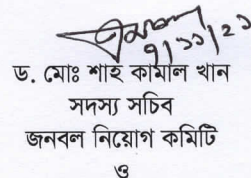 ৭/১১/২১
ড. মোঃ শাহ কামাল খান
সদস্য সচিব
জনবল নিয়োগ কমিটি
ও